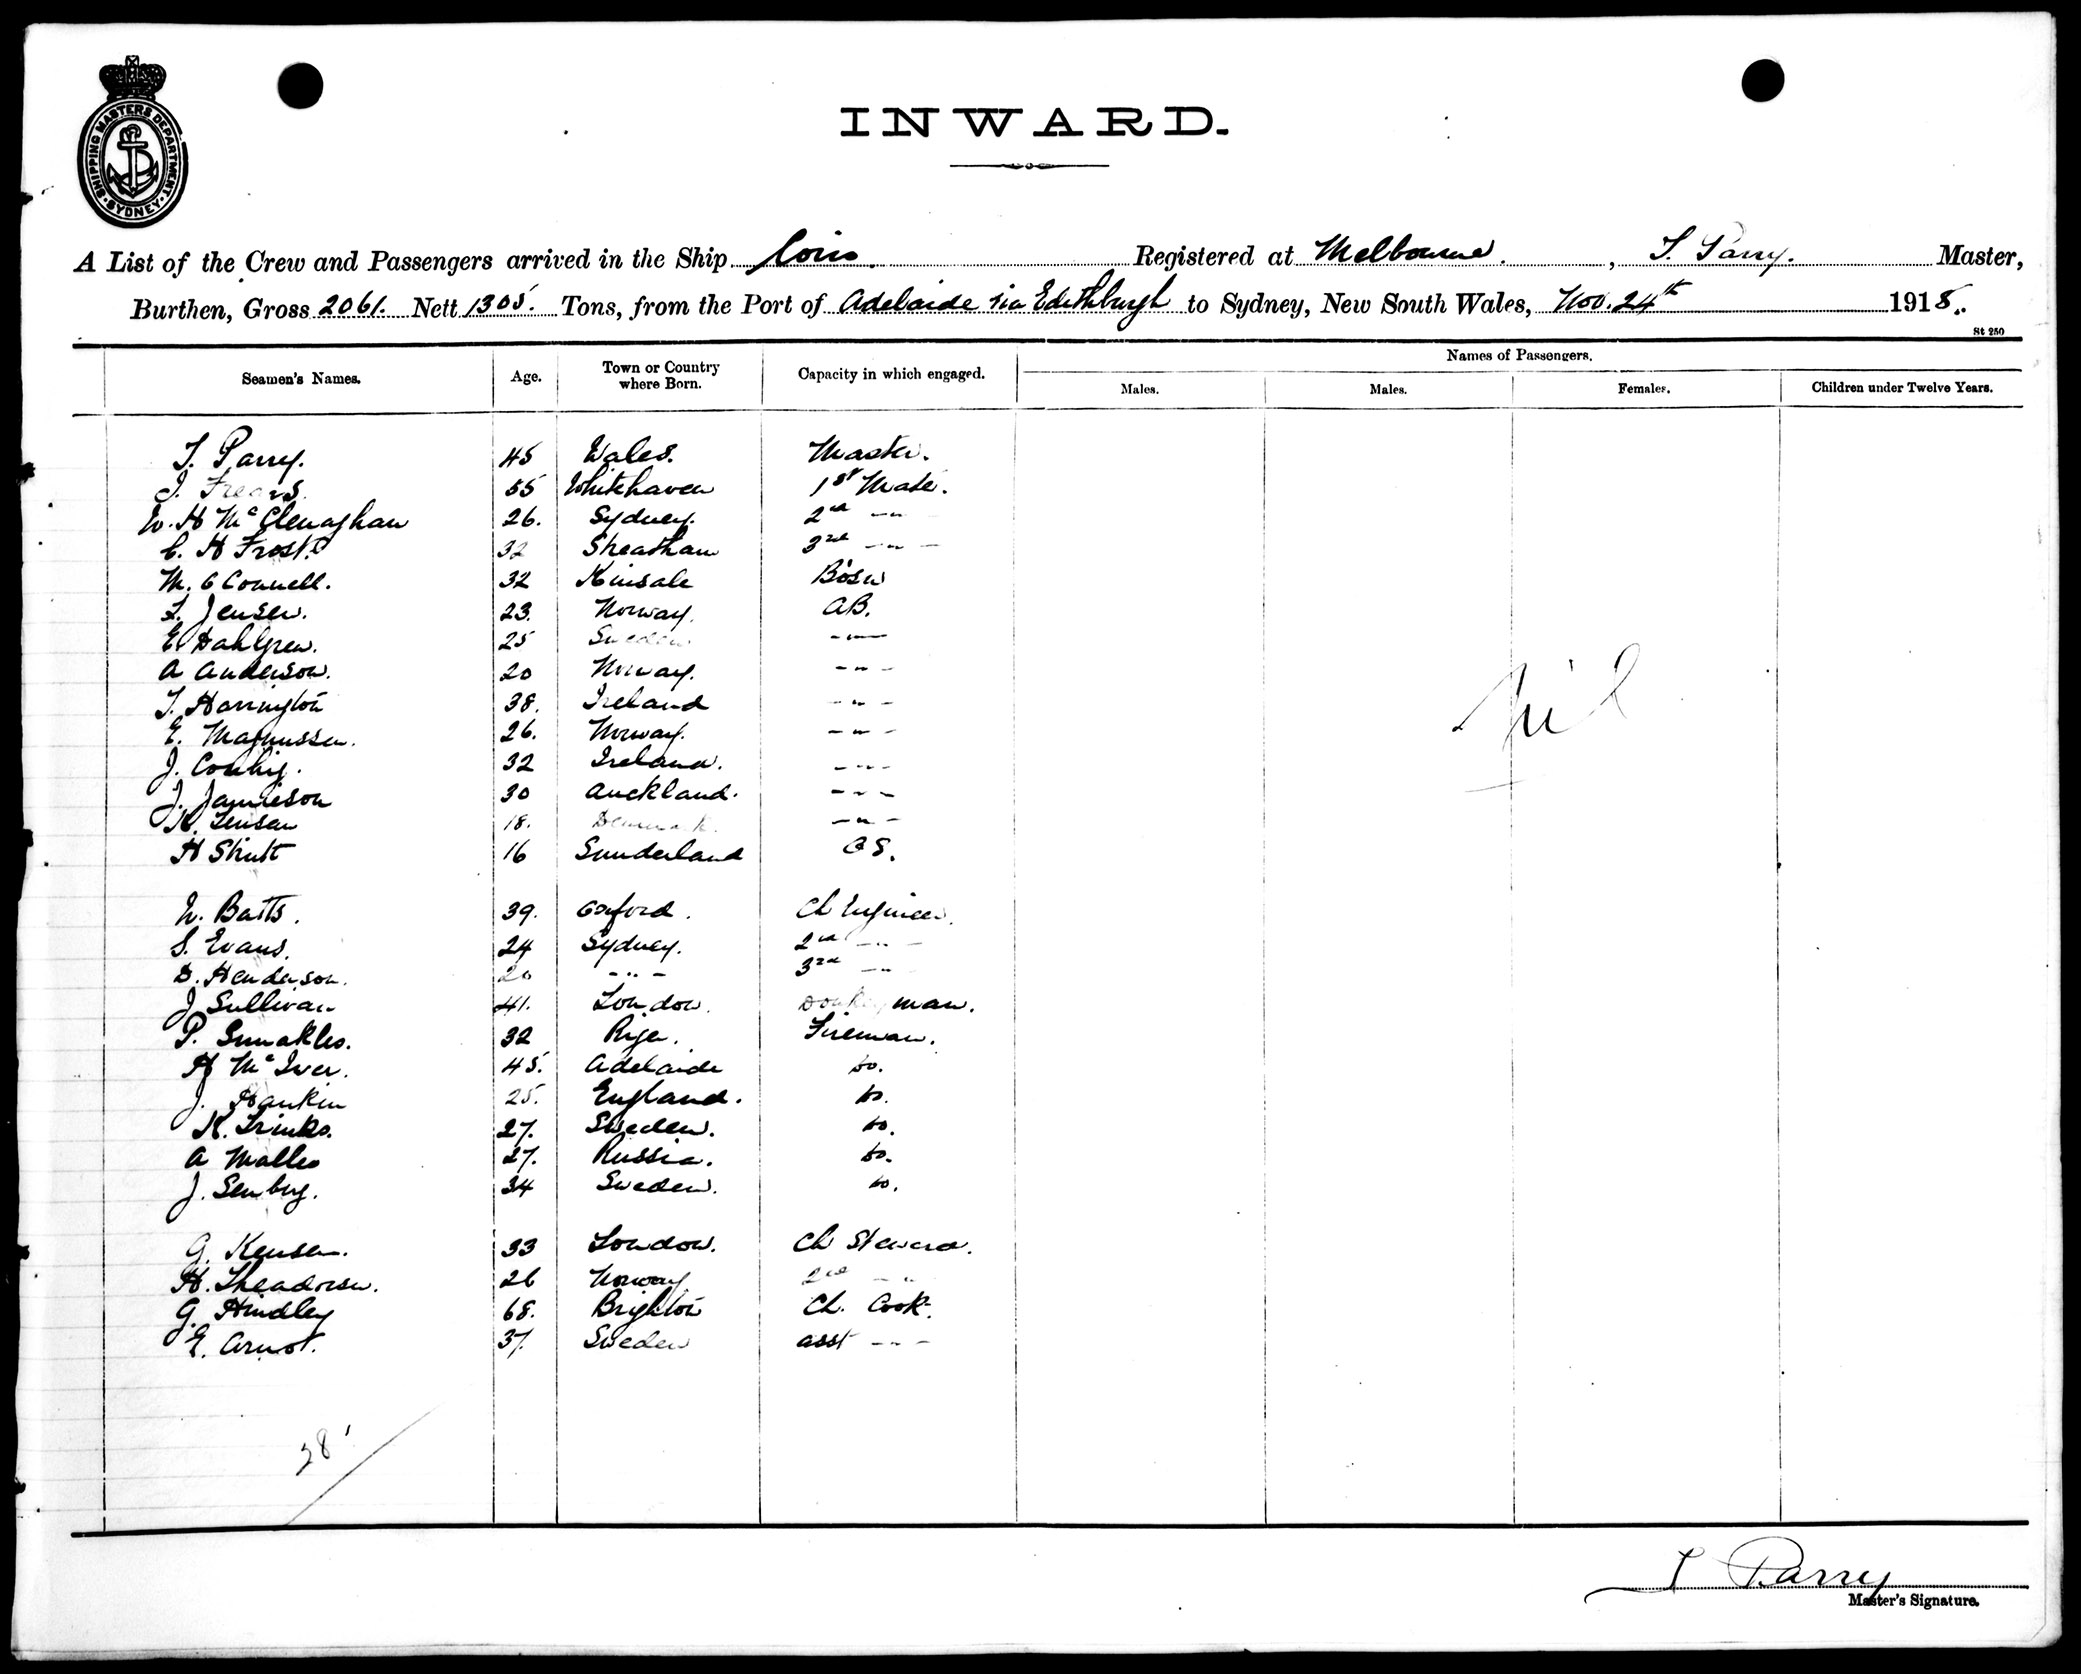 SHIPPING MASTERS DEPARTMENT
SYDNEY
INWARD.
A List of the Crew and Passengers arrived in the Ship Registered at Melbourne. , T. Parry. Master,
Burthen, Gross 2061. Nett 1305. Tons, from the Port of Adelaide via Edithburgh to Sydney, New South Wales, Nov. 24th 1918.
St 250
Seamen's Names. Age. Town or Country where Born. Capacity in which engaged. Names of Passengers.
Males. Males. Females. Children under Twelve Years.
T. Parry. 45 Wales. Master.
J. Frears. 55 Whitehaven 1st Mate.
W. H McClenaghan 26. Sydney. 2nd -"-
C. H Frost. 32 Streatham 3rd -"-
M. O Connell. 32 Kinsale Bosn
L. Jensen. 23. Norway. AB.
E Dahlgren. 25 Sweden. -"-
A Anderson. 20 Norway. -"-
T. Harrington 38. Ireland -"-
E. Magnussen. 26. Norway. -"-
J. Conhig. 32 Ireland. -"-
J. Jamieson 30 Auckland. -"-
K. Jensen 18. Denmark. -"-
H Shutt 16 Sunderland OS.
W. Batts. 39. Oxford. Ch Engineer.
S. Evans. 24 Sydney. 2nd -"-
D. Henderson. 20 -"- 3rd -"-
J Sullivan 41. London. Donkeyman.
P. 32 Riga. Fireman.
H McIver. 45. Adelaide Do.
J. Hankin 25. England. Do.
K. Trinks. 27. Sweden. Do.
A 27. Russia. Do.
J. Senberg. 34 Sweden. Do.
G. Kensen. 33 London. Ch Steward.
H. Theadorsen. 26 Norway 2nd -"-
G. Hindley 68. Brighton Ch. Cook.
E. Arnot. 37. Sweden asst -"-
Nil
28
T Parry
Master's Signature.